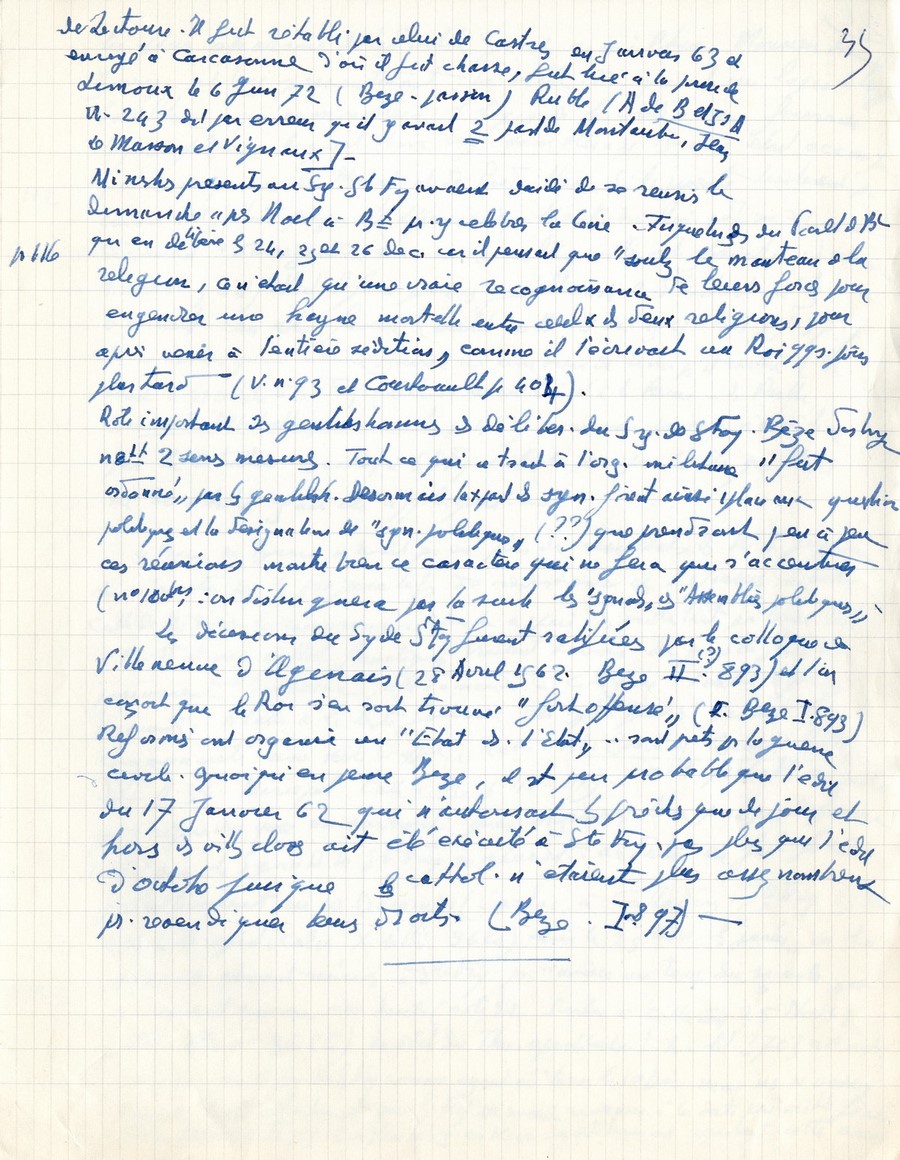 35
de Lectoure. Il fut rétabli par celui de Castres en Janvier 63 et
envoyé à Carcassonne d'où il fut chassé, fut tué à la prise de
Limoux le 6 Juin 72 (Beze - passim) Ruble (A de B et J d'A
II. 243 dit par erreur qu'il y avait 2 past de Montauban, Jean
le Masson et Vignaux] -
Ministres présents au Sy. St Foy avaient décidé de se réunir le
dimanche après Noel à Bx pr. y celebrer la Cène. Inquietudes du Parlt d Bx
p 116
qui en délibère ls 24, 25 et 26 dec. car il pensait que "soulz le manteau de la
religion, ce n'était qu'une vraie recognoissance de leurs forces pour
engendrer une hayne mortelle entre ceulx ds deux religions, pour
après venir à l'entière sédition", comme il l'écrivait au Roi qqs. jours
plus tard - (V. n. 93 et Courteault p 404).
Role important ds gentilshommes ds déliber. du Sy. de St Foy. Bèze
2 sens mesures. Tout ce qui a trait à l'org. militaire "fut
ordonné" par ls gentilsh. Desormais la part ds syn. firent ainsi place aux question
politiques et la désignation de "syn. politiques" (??) que prendront peu à peu
ces réunions montre bien ce caractère qui ne fera que s'accentuer
(n° 100 bis, : on distinguera par la suite les synodes, ds "Assemblées politiques",)
Les décisions du Sy de St Foy furent ratifiées par le colloque de
Villeneuve d'Agenais (28 Avril 1562. Beze II (?). 893) et l'on
conçoit que le Roi s'en soit trouvé "fort offensé", (Beze I. 893)
Réformés ont organisé un "Etat ds. l'Etat", .. sont prêts pr la guerre
civile. Quoiqu'en pense Beze, il est peu probable que l'edit
du 17 Janvier 62 qui n'autorisait ls prêches que de jour et
hors ds villes closes ait été exécuté à Ste Foy. pas plus que l'edit
d'octobre puisque ls cathol. n'étaient plus assez nombreux
pr. revendiquer leurs droits. (Beze. I. 897) —